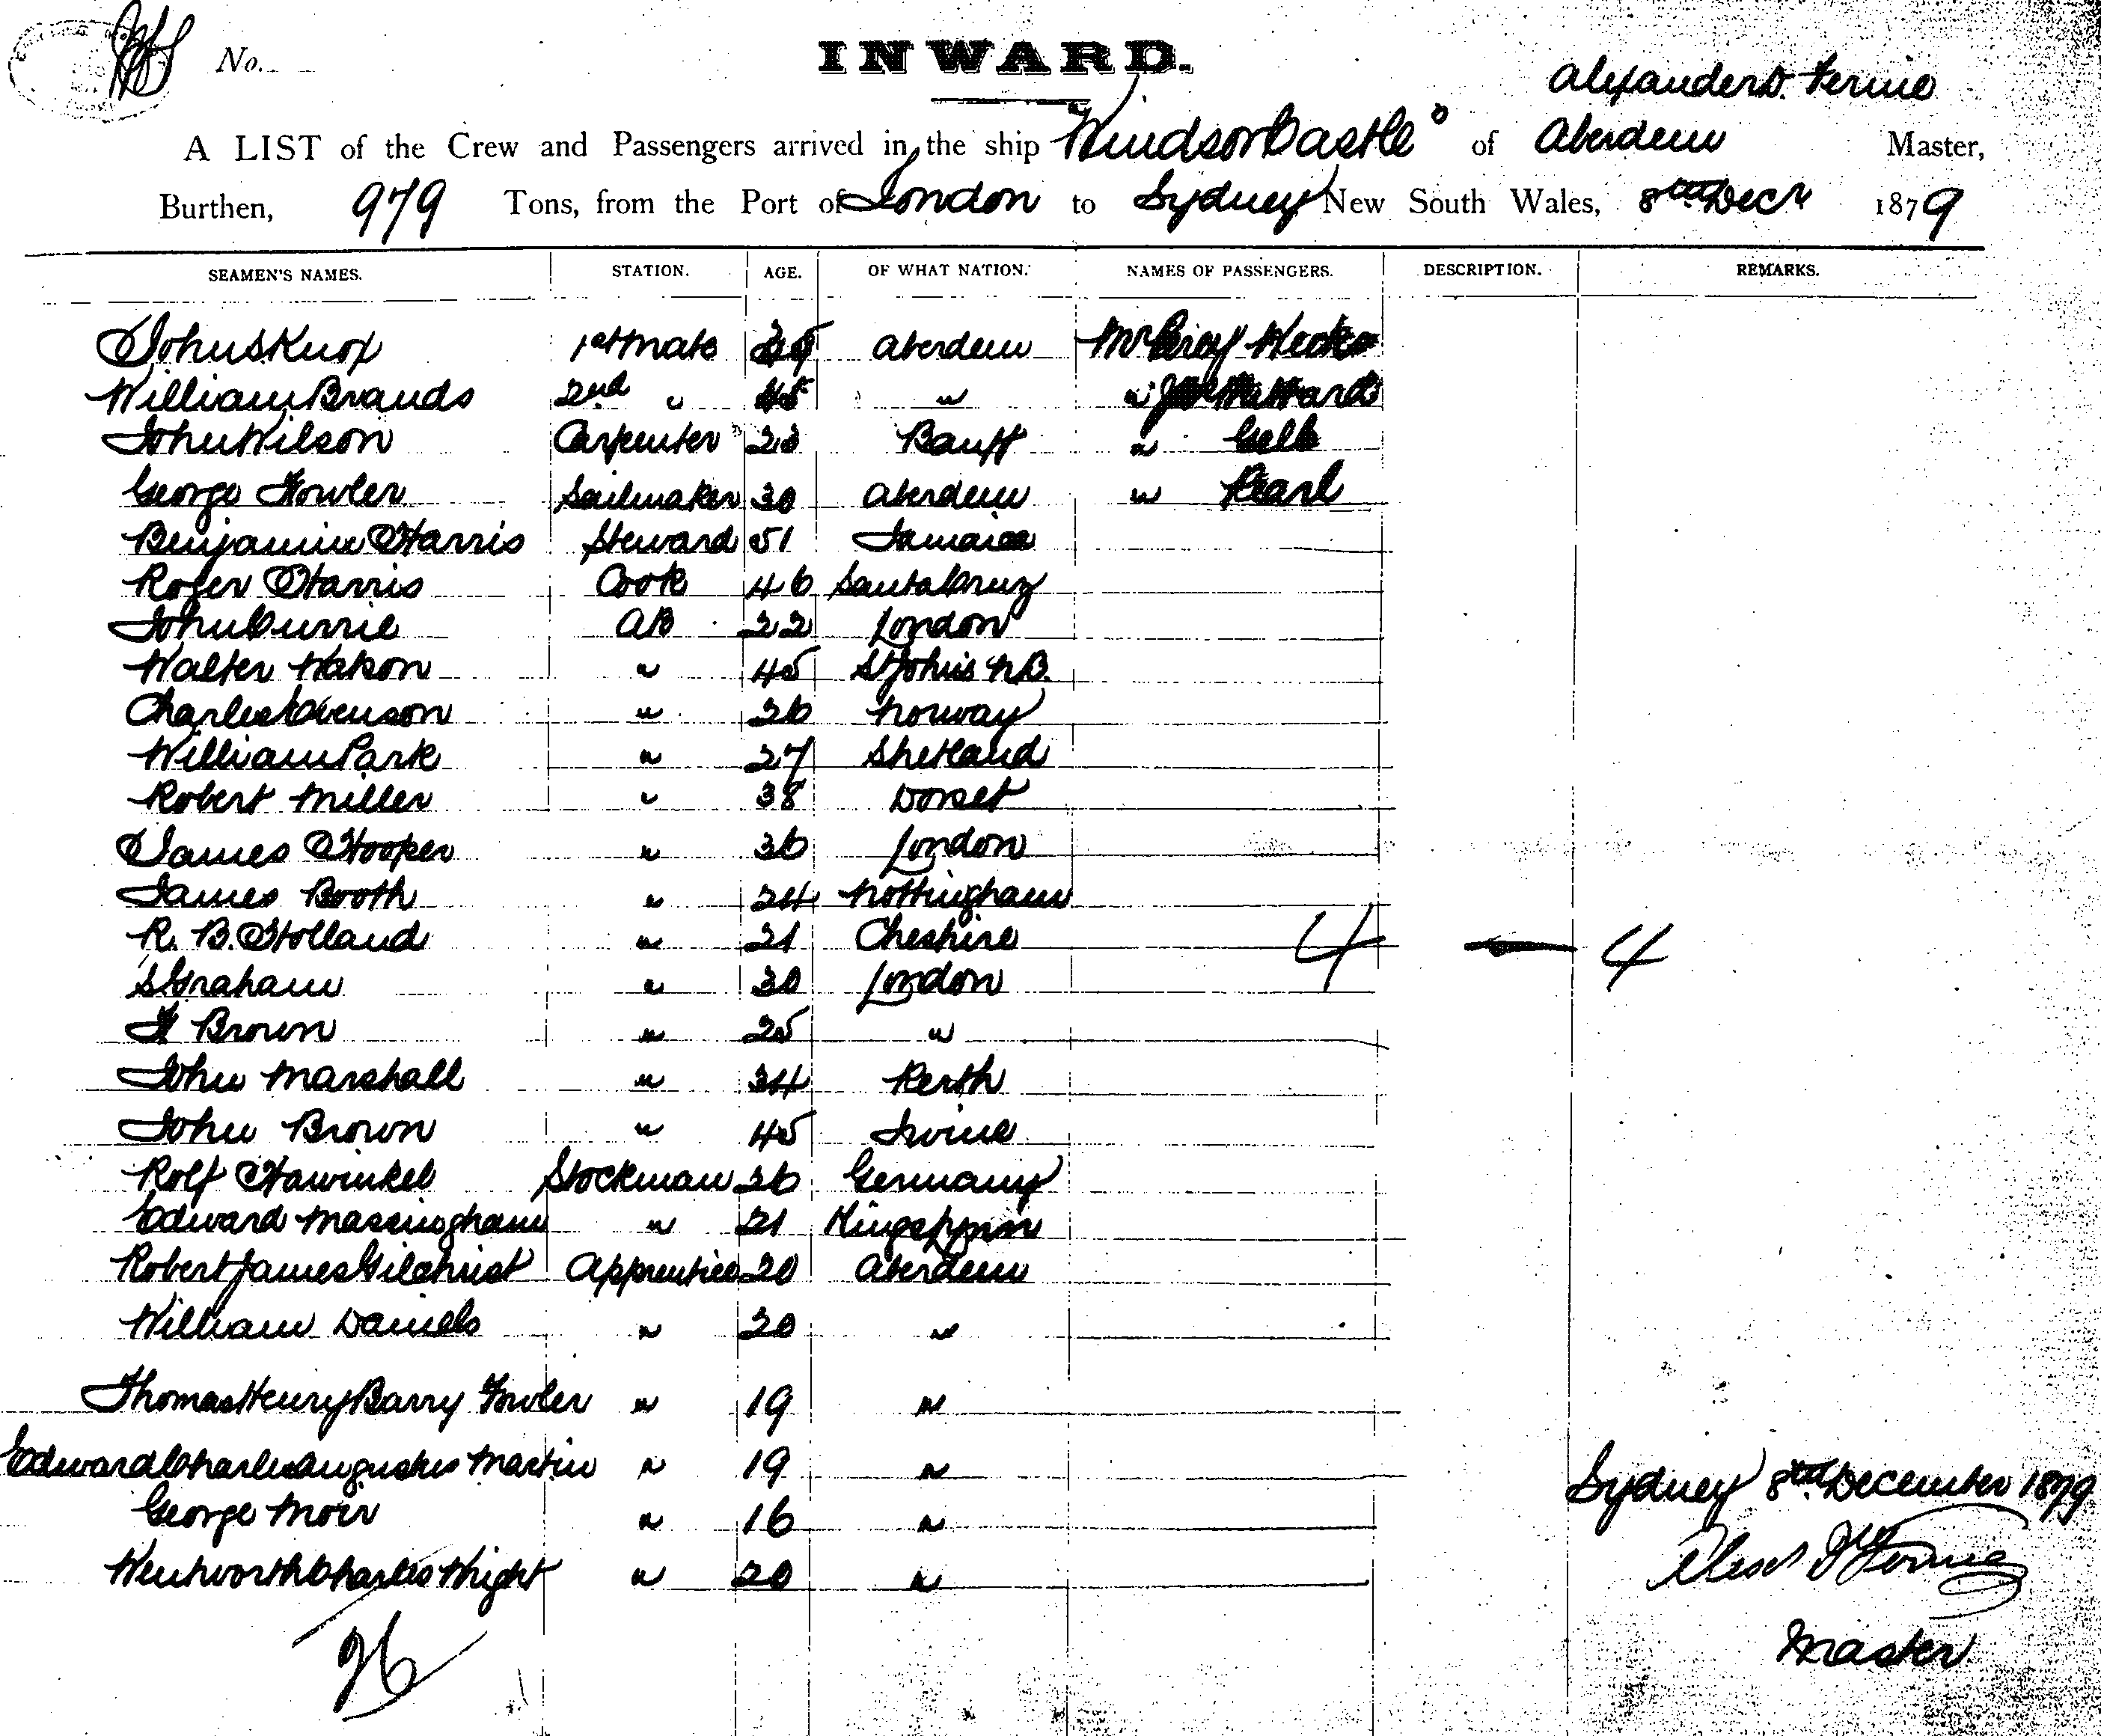 No.
INWARD.
Alexander D. Fernie
A LIST of the Crew and Passengers arrived in the ship "Windsor Castle" of Aberdeen Master,
Burthen, 979 Tons, from the Port of London to Sydney New South Wales, 8th Decr 1879
SEAMEN'S NAMES. STATION. AGE. OF WHAT NATION. NAMES OF PASSENGERS. DESCRIPTION. REMARKS.
John S Knox 1st Mate Aberdeen Mr Percy
William Brands 2nd " 45 " "
John Wilson Carpenter 23 Banff " Gell
George Fowler Sailmaker 30 Aberdeen " Pearl
Benjamin Harris Steward 51 Jamaica
Roger Harris Cook 46 Santa Cruz
John Currie AB 22 London
Walter Hakon " 45 St John's N.B.
Charles Evenson " 26 Norway
William Park " 27 Shetland
Robert Miller " 38 Dorset
James Hooper " 36 London
James Booth " 24 Nottingham
R. B. Holland " 21 Cheshire 4 — 4
S Graham " 30 London
Brown " 25 "
John Marshall " 34 Perth
John Brown " 45 Irvine
Rolf Hawinkel Stockman 26 Germany
Edward Massingham " 21 Kings Lynn
Robert James Gilchrist Apprentice 20 Aberdeen
William Daniels " 20 "
Thomas Henry Barry Fowler " 19 "
Edward Charles Augustus Martin " 19 "
Sydney 8th December 1879
George Moir " 16 "
Alexr D Fernie
Wentworth Charles Wright " 20 "
26
Master